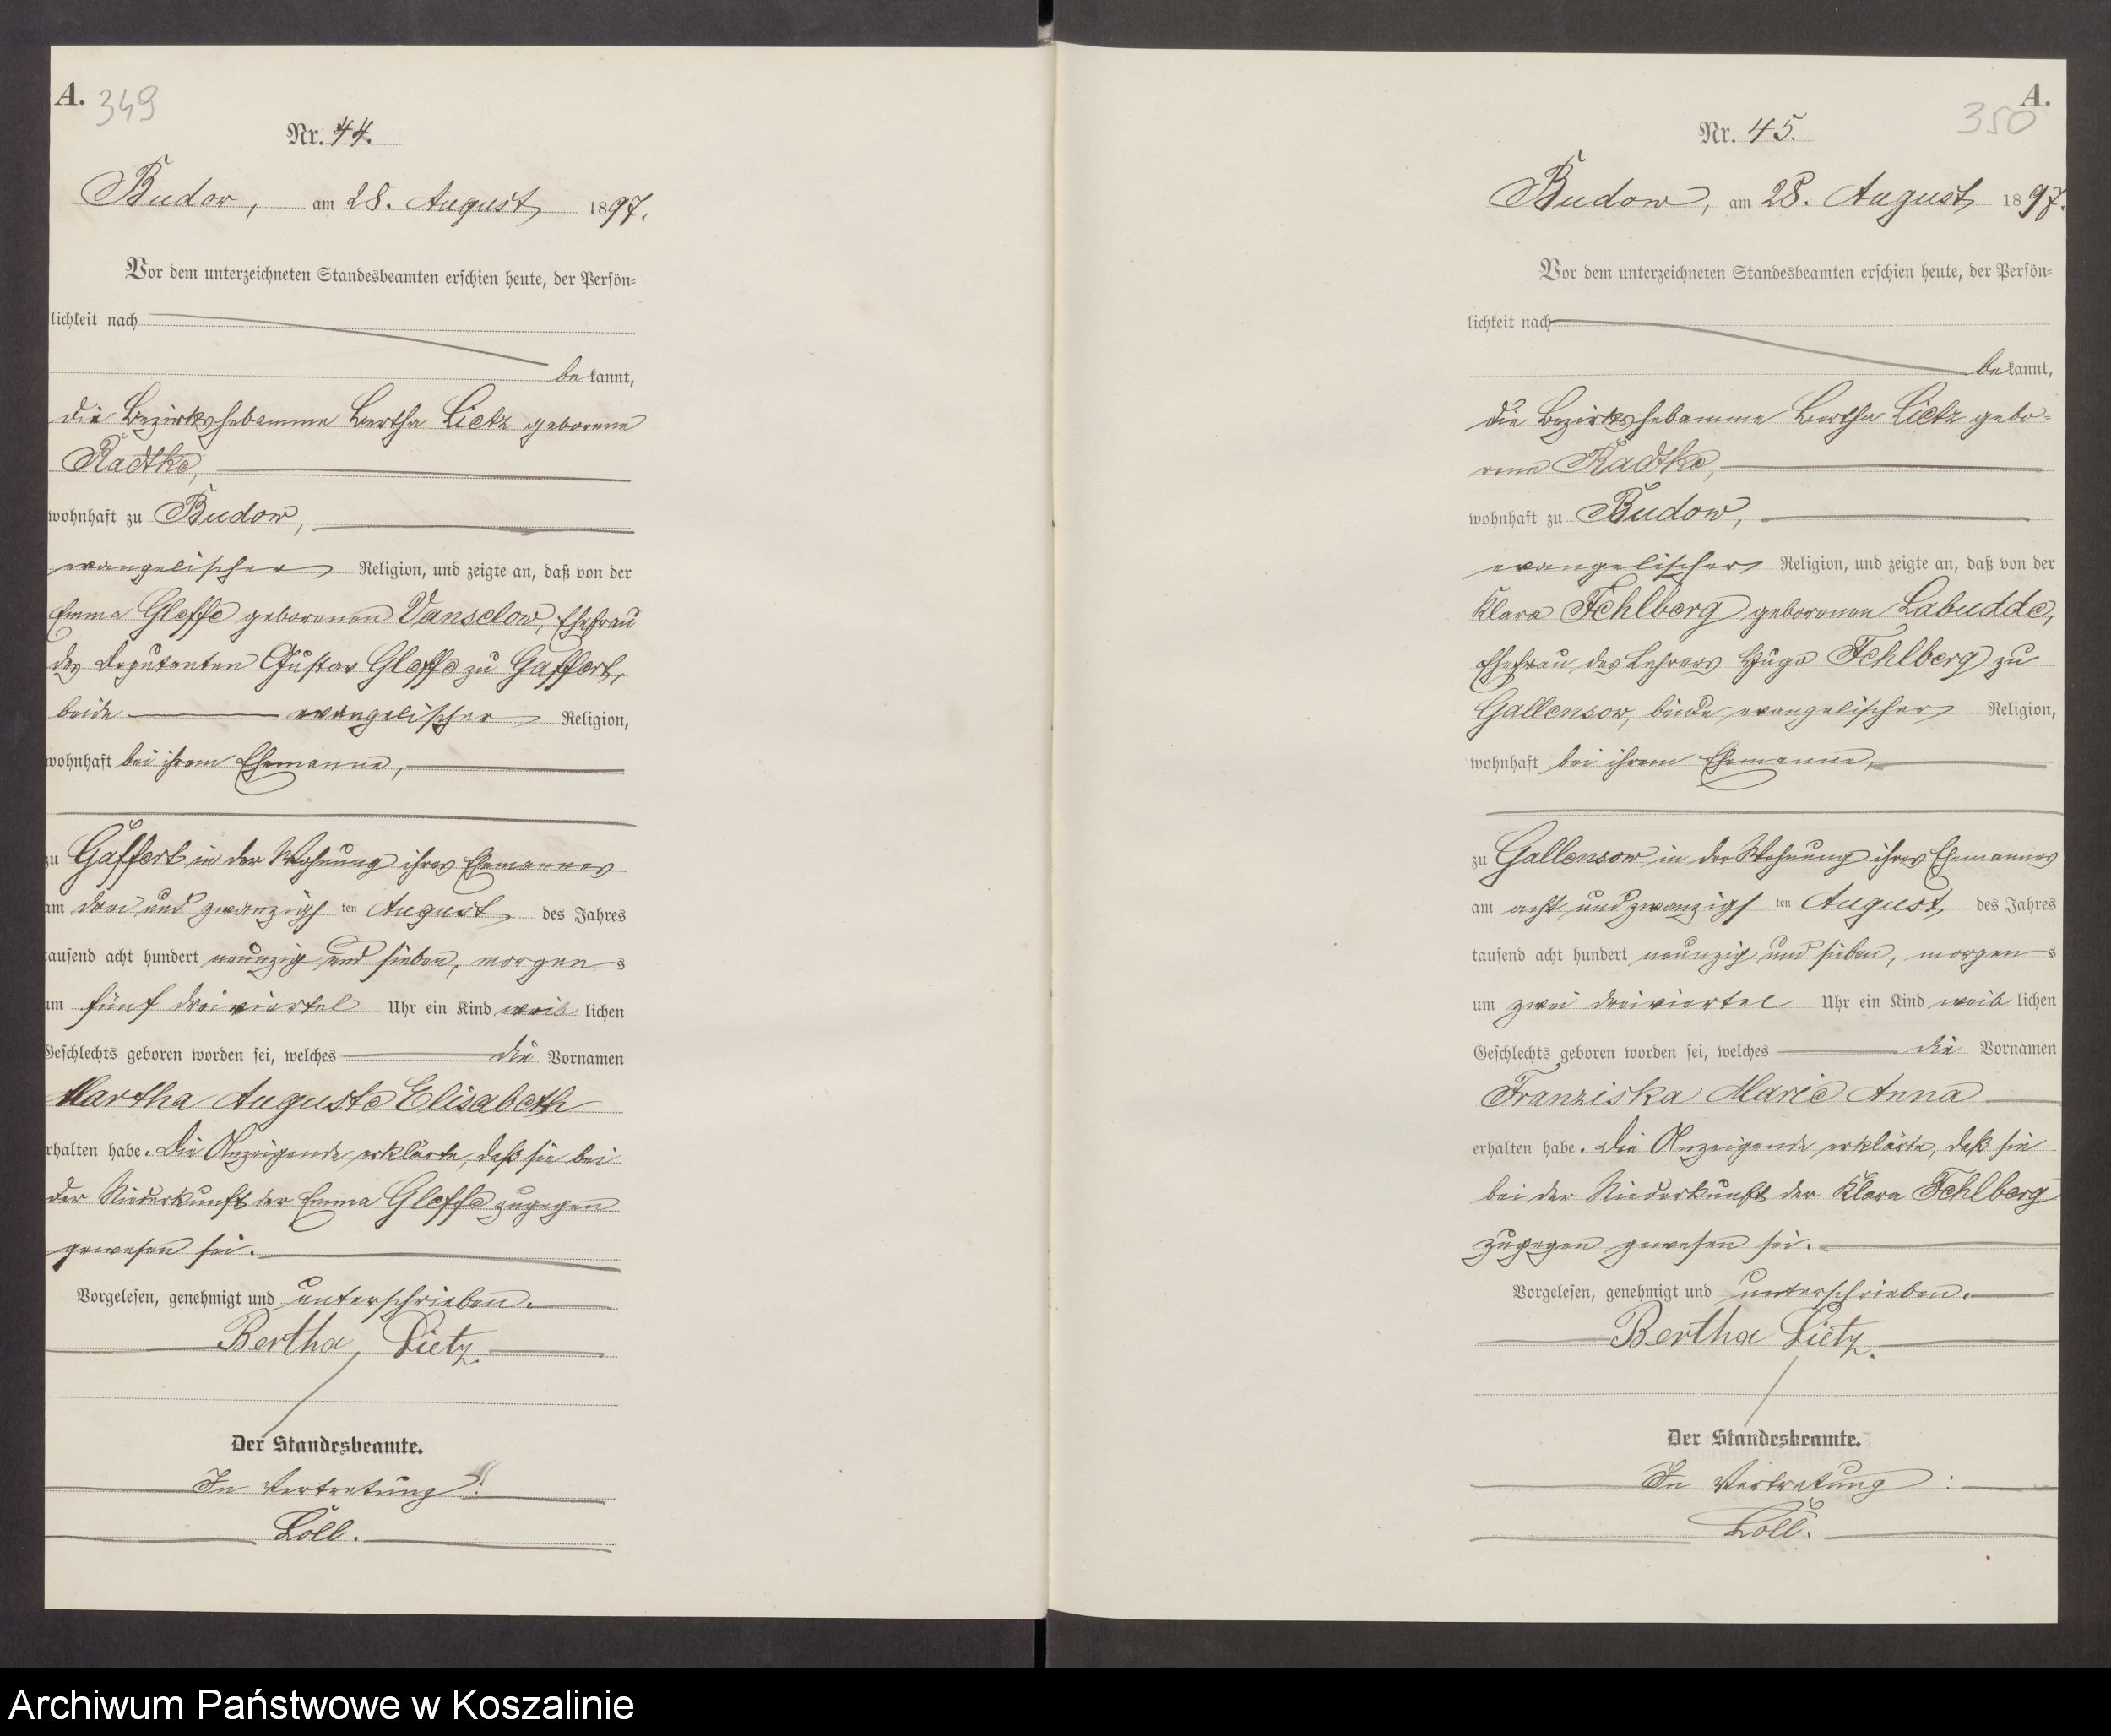 A. 349
Nr. 44.
Budow, am 28. August 1897.
Vor dem unterzeichneten Standesbeamten erschien heute, der Persön-
lichkeit nach
bekannt,
die Bezirkshebamme Bertha Lietz geborene
Radtke,
wohnhaft zu Budow,
evangelischer Religion, und zeigte an, daß von der
Emma Gleffe geborenen Vanselow, Ehefrau
des Deputanten Gustav Gleffe zu Gaffert,
beide evangelischer Religion,
wohnhaft bei ihrem Ehemanne,
zu Gaffert in der Wohnung ihres Ehemannes
am drei und zwanzigsten August des Jahres
tausend acht hundert neunzig und sieben, morgens
um fünf dreiviertel Uhr ein Kind weiblichen
Geschlechts geboren worden sei, welches die Vornamen
Martha Auguste Elisabeth
erhalten habe. Die Anzeigende erklärte, daß sie bei
der Niederkunft der Emma Gleffe zugegen
gewesen sei.
Vorgelesen, genehmigt und unterschrieben.
Bertha Lietz.
Der Standesbeamte.
In Vertretung:
Loll.
A.
350
Nr. 45.
Budow, am 28. August 1897.
Vor dem unterzeichneten Standesbeamten erschien heute, der Persön-
lichkeit nach
bekannt,
die Bezirkshebamme Bertha Lietz gebo-
rene Radtke,
wohnhaft zu Budow,
evangelischer Religion, und zeigte an, daß von der
Klara Fehlberg geborenen Labudde,
Ehefrau des Lehrers Hugo Fehlberg zu
Gallensow, beide evangelischer Religion,
wohnhaft bei ihrem Ehemanne,
zu Gallensow in der Wohnung ihres Ehemannes
am acht und zwanzigsten August des Jahres
tausend acht hundert neunzig und sieben, morgens
um zwei dreiviertel Uhr ein Kind weiblichen
Geschlechts geboren worden sei, welches die Vornamen
Franziska Marie Anna
erhalten habe. Die Anzeigende erklärte, daß sie
bei der Niederkunft der Klara Fehlberg
zugegen gewesen sei.
Vorgelesen, genehmigt und unterschrieben.
Bertha Lietz.
Der Standesbeamte.
In Vertretung:
Loll.
Archiwum Państwowe w Koszalinie